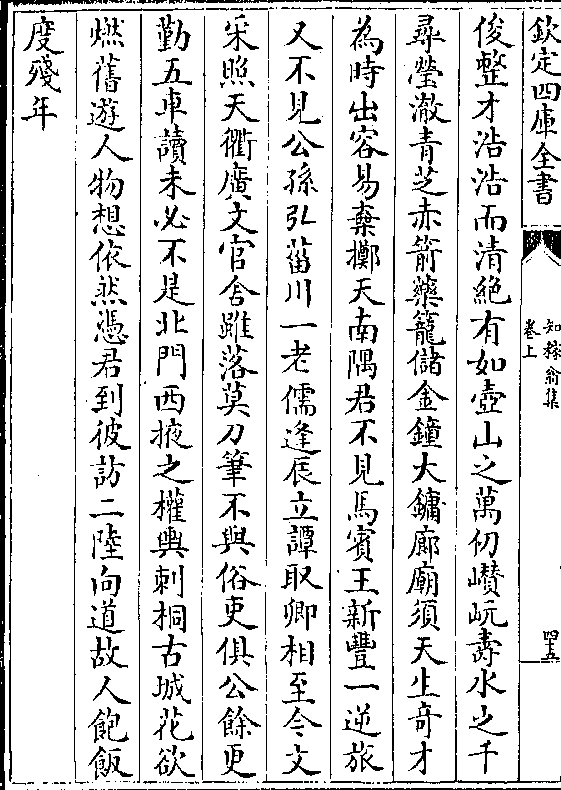 欽定四庫全書
知稼翁集
卷上
四五
俊整才浩浩而清絶有如壺山之萬仞巑岏壽水之千
尋瑩澈青芝赤箭藥籠儲金鐘大鏞廊廟須天生奇才
為時出容易棄擲天南隅君不見馬賓王新豐一逆旅
又不見公孫弘菑川一老儒逢辰立譚取卿相至今文
采照天衢廣文官舍雖落莫刀筆不與俗吏俱公餘更
勤五車讀未必不是北門西掖之權輿刺桐古城花欲
燃舊遊人物想依然憑君到彼訪二陸向道故人飽飯
度殘年